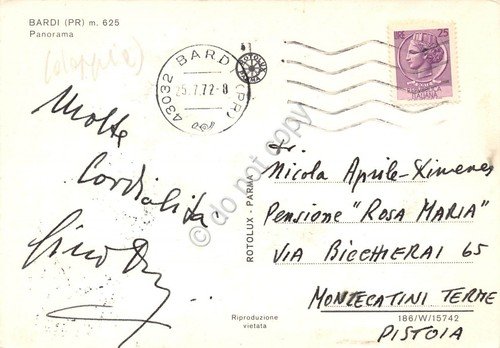 BARDI (PR) m. 625
Panorama
(doppia)
43032 BARDI (PR)
25.7.72-8
ROTOLUX
PARMA
LIRE 25
ITALIANA
Molte
Cordialità
ROTOLUX - PARMA
do not copy
Dr.
Nicola Aprile-Ximenes
Pensione "ROSA MARIA"
VIA BICCHIERAI 65
MONTECATINI TERME
PISTOIA
Riproduzione
vietata
186/W/15742